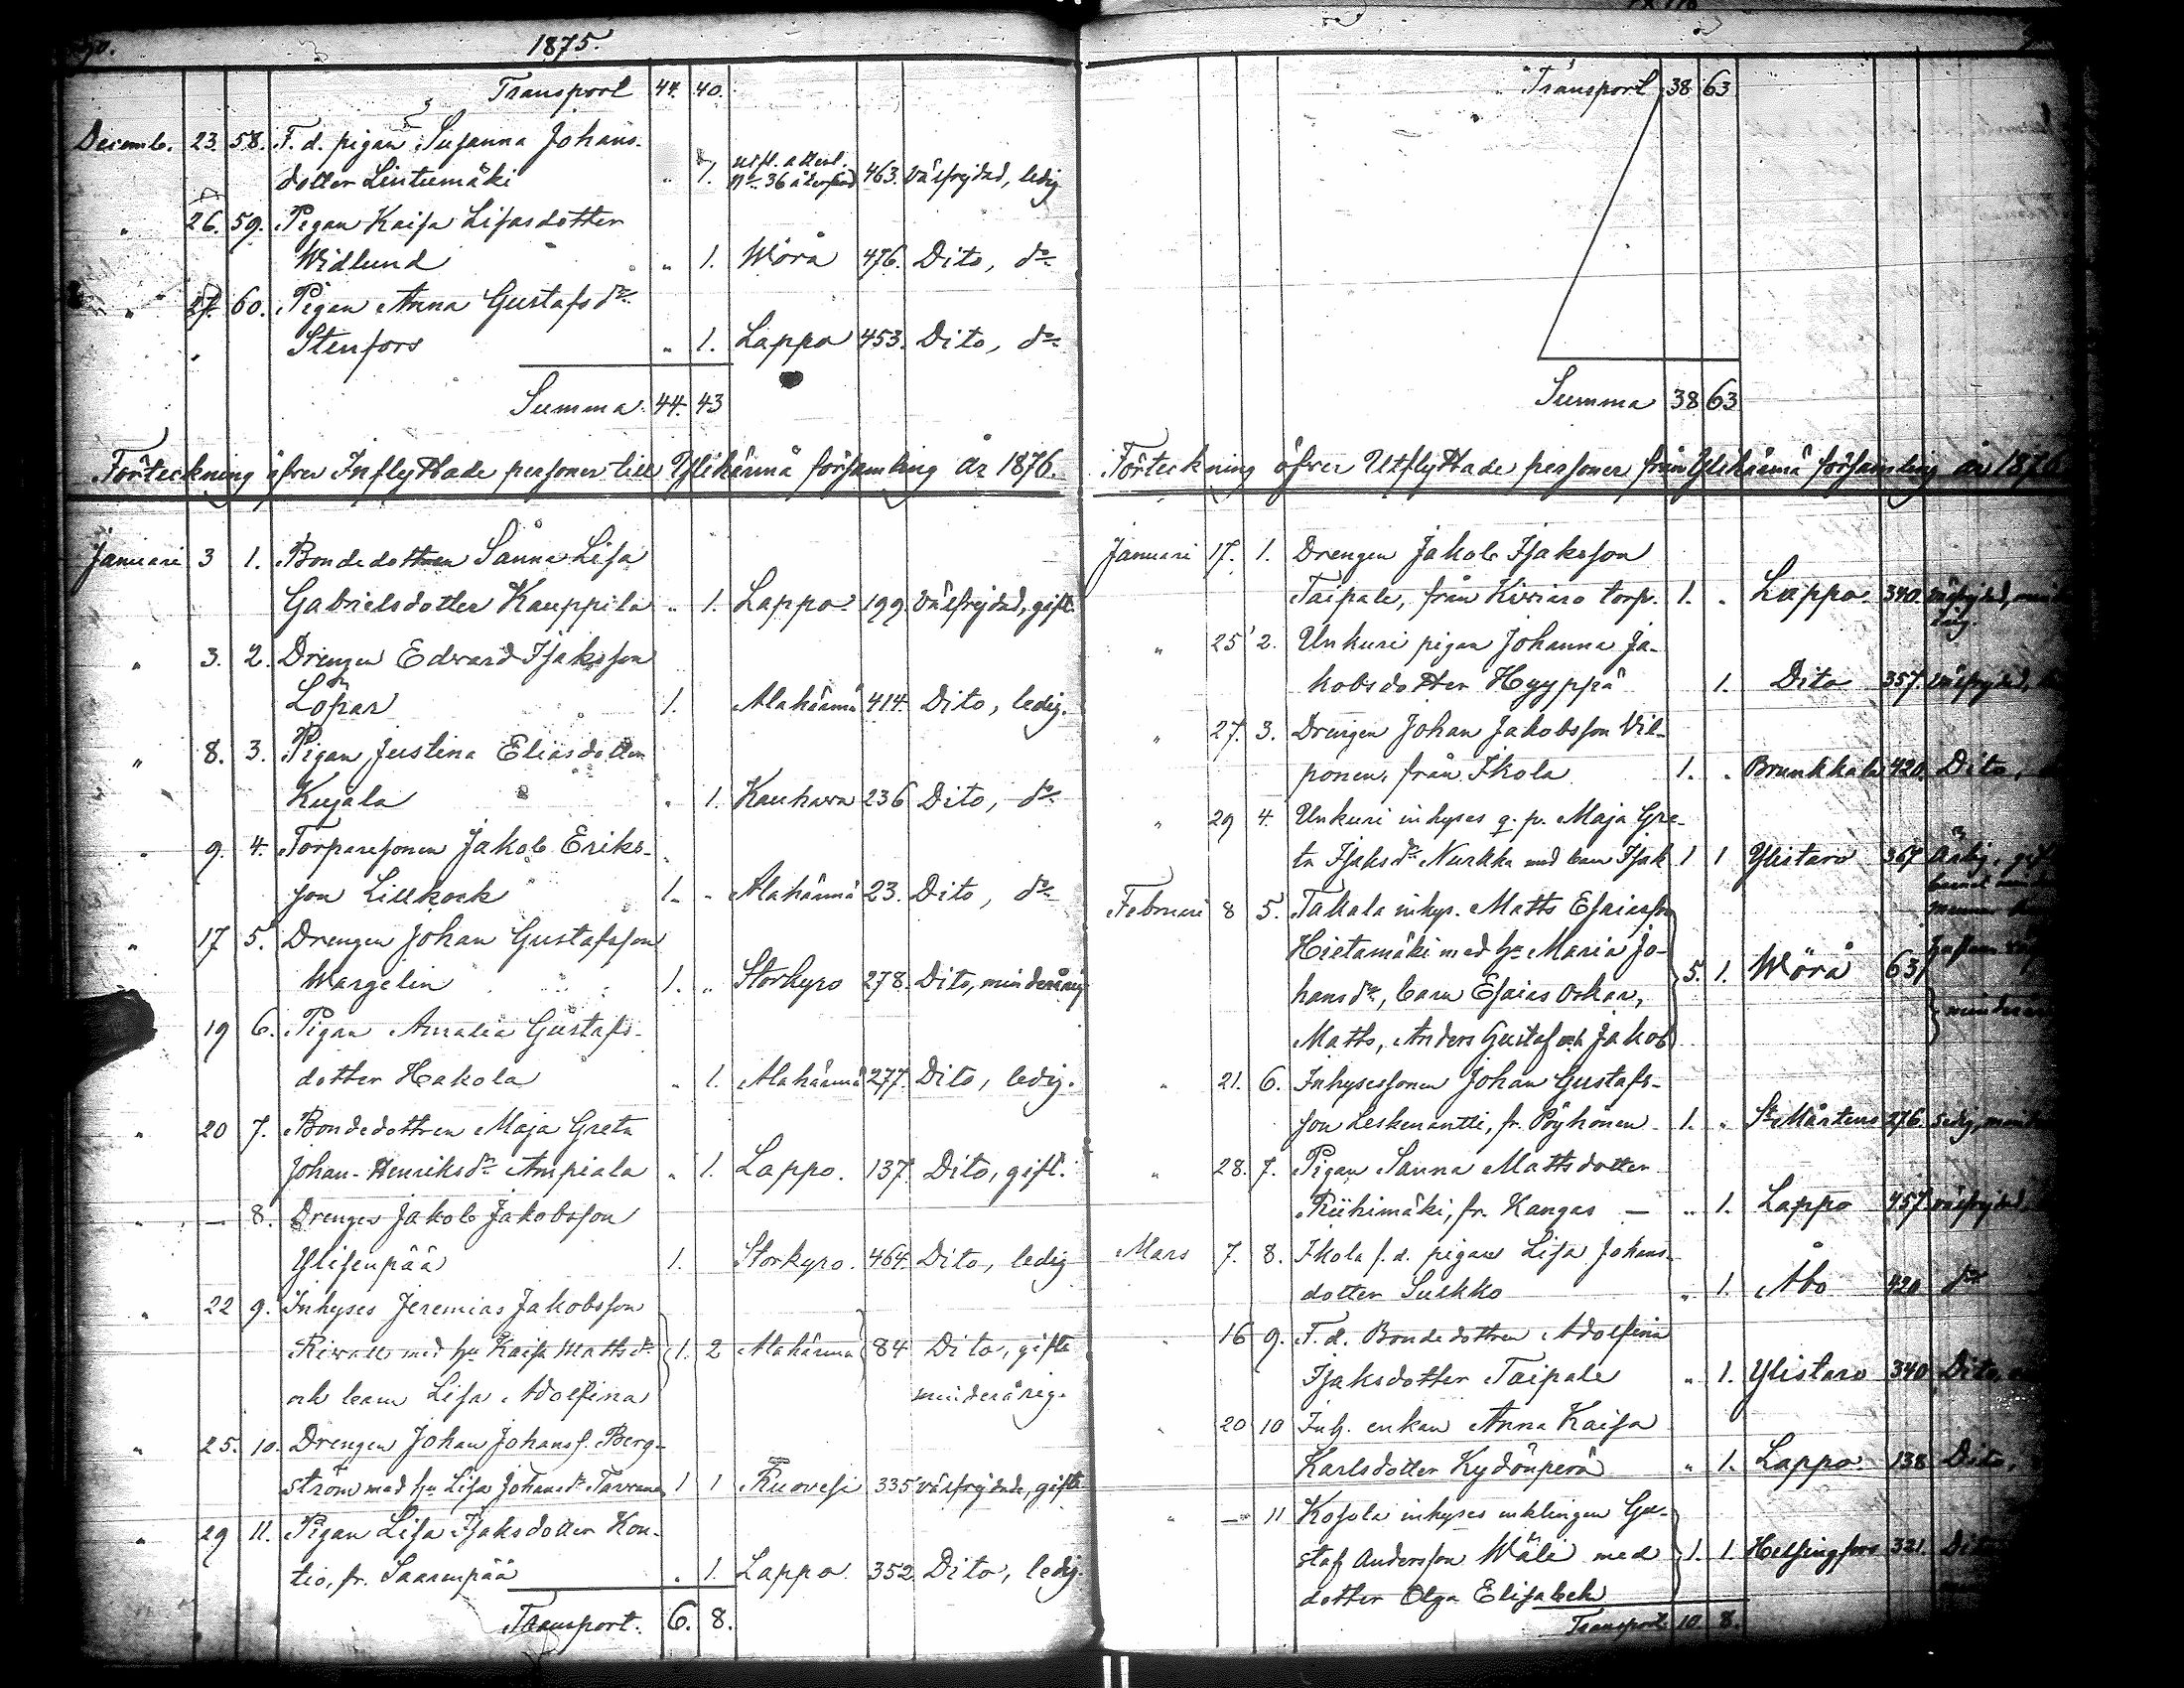 1875.
Transport 44. 40.
Decemb. 23. 58. F. d. pigan Susanna Johans-
dotter Lintumäki „ 1. No 36 återsänd 463. Välfrejdad, ledig
„ 26. 59. Pigan Kaisa Lisasdotter
Widlund „ 1. Wörå 476. Dito, do
„ 27. 60. Pigan Anna Gustafsdr
Stenfors „ 1. Lappo 453. Dito, do
Summa 44. 43
Förteckning öfver Inflyttade personer till Ylihärmä församling år 1876.
Januari 3 1. Bondedottren Sanna Lisa
Gabrielsdotter Kauppila „ 1. Lappo 199. Välfrejdad, gift.
„ 3. 2. Drengen Edvard Isaksson
Lopar 1. Alahärmä 414. Dito, ledig.
„ 8. 3. Pigan Justina Eliasdotter
Kujala „ 1. Kauhava 236 Dito, do
„ 9. 4. Torparesonen Jakob Eriks-
son Lillkock 1. „ Alahärmä 23. Dito, do
„ 17 5. Drengen Johan Gustafsson
Wargelin 1. „ Storkyro 278. Dito, minderårig
19 6. Pigan Amalia Gustafs-
dotter Hakola „ 1. Alahärmä 277. Dito, ledig.
„ 20 7. Bondedottren Maja Greta
Johan-Henriksdr Ampiala „ 1. Lappo. 137. Dito, gift.
„ — 8. Drengen Jakob Jakobsson
Ylisenpää 1. Storkyro. 464. Dito, ledig
„ 22 9. Inhyses Jeremias Jakobsson
Riwall med hu Kaisa Mattsdr 1. 2 Alahärmä 84 Dito, gifta
och barn Lisa Adolfina minderårig.
„ 25. 10. Drengen Johan Johanss. Berg-
ström med hu Lisa Johansdr 1 1 Ruovesi 335 välfrejdade, gifta
„ 29 11. Pigan Lisa Isaksdotter Kon-
tio, fr. Saarenpää „ 1. Lappo. 352. Dito, ledig.
Transport. 6. 8.
Transport 38 63
Summa 38 63
Förteckning öfver Utflyttade personer från Ylihärmä församling år 1876
Januari 17. 1. Drengen Jakob Isaksson
Taipale, från Kiviaro torp. 1. „ Lappo 340. välfrejdad,
„ 25 2. Unkuri pigan Johanna Ja-
kobsdotter Hyyppä 1. Dito 357. välfrejdad,
„ 27. 3. Drengen Johan Jakobsson Vil-
ponen, från Ikola 1. „ Brunkkala 420. Dito,
„ 29 4. Unkuri inhyses q. p. Maja Gre-
ta Isaksdr Nurkka med barn Isak 1 1 Ylistaro 367
Februari 8 5. Takala inhys. Matts Esaiasson
Hietamäki med hu Maria Jo-
hansdr, barn Esaias Oskar, 5. 1. Wörå 63
Matts, Anders Gustaf och Jakob
„ 21. 6. Inhysessonen Johan Gustafs-
son Leskenantti, fr. Pöyhönen 1. „ St Mårtens 276.
„ 28. 7. Pigan Sanna Mattsdotter
Riihimäki, fr. Kangas — „ 1. Lappo 457. välfrejdad,
Mars 7. 8. Ikola f. d. pigan Lisa Johans-
dotter Sulkko „ 1. Åbo 420 do
16 9. F. d. Bondedottren Adolfina
Isaksdotter Taipale „ 1. Ylistaro 340 Dito,
20 10 Inh. enkan Anna Kaisa
Karlsdotter Kydönperä „ 1. Lappo. 138 Dito,
„ — 11 Kosola inhyses enklingen Gu-
staf Andersson Wäli med 1. 1. Helsingfors 321. Dito
dotter Olga Elisabeth
Transport 10. 8.